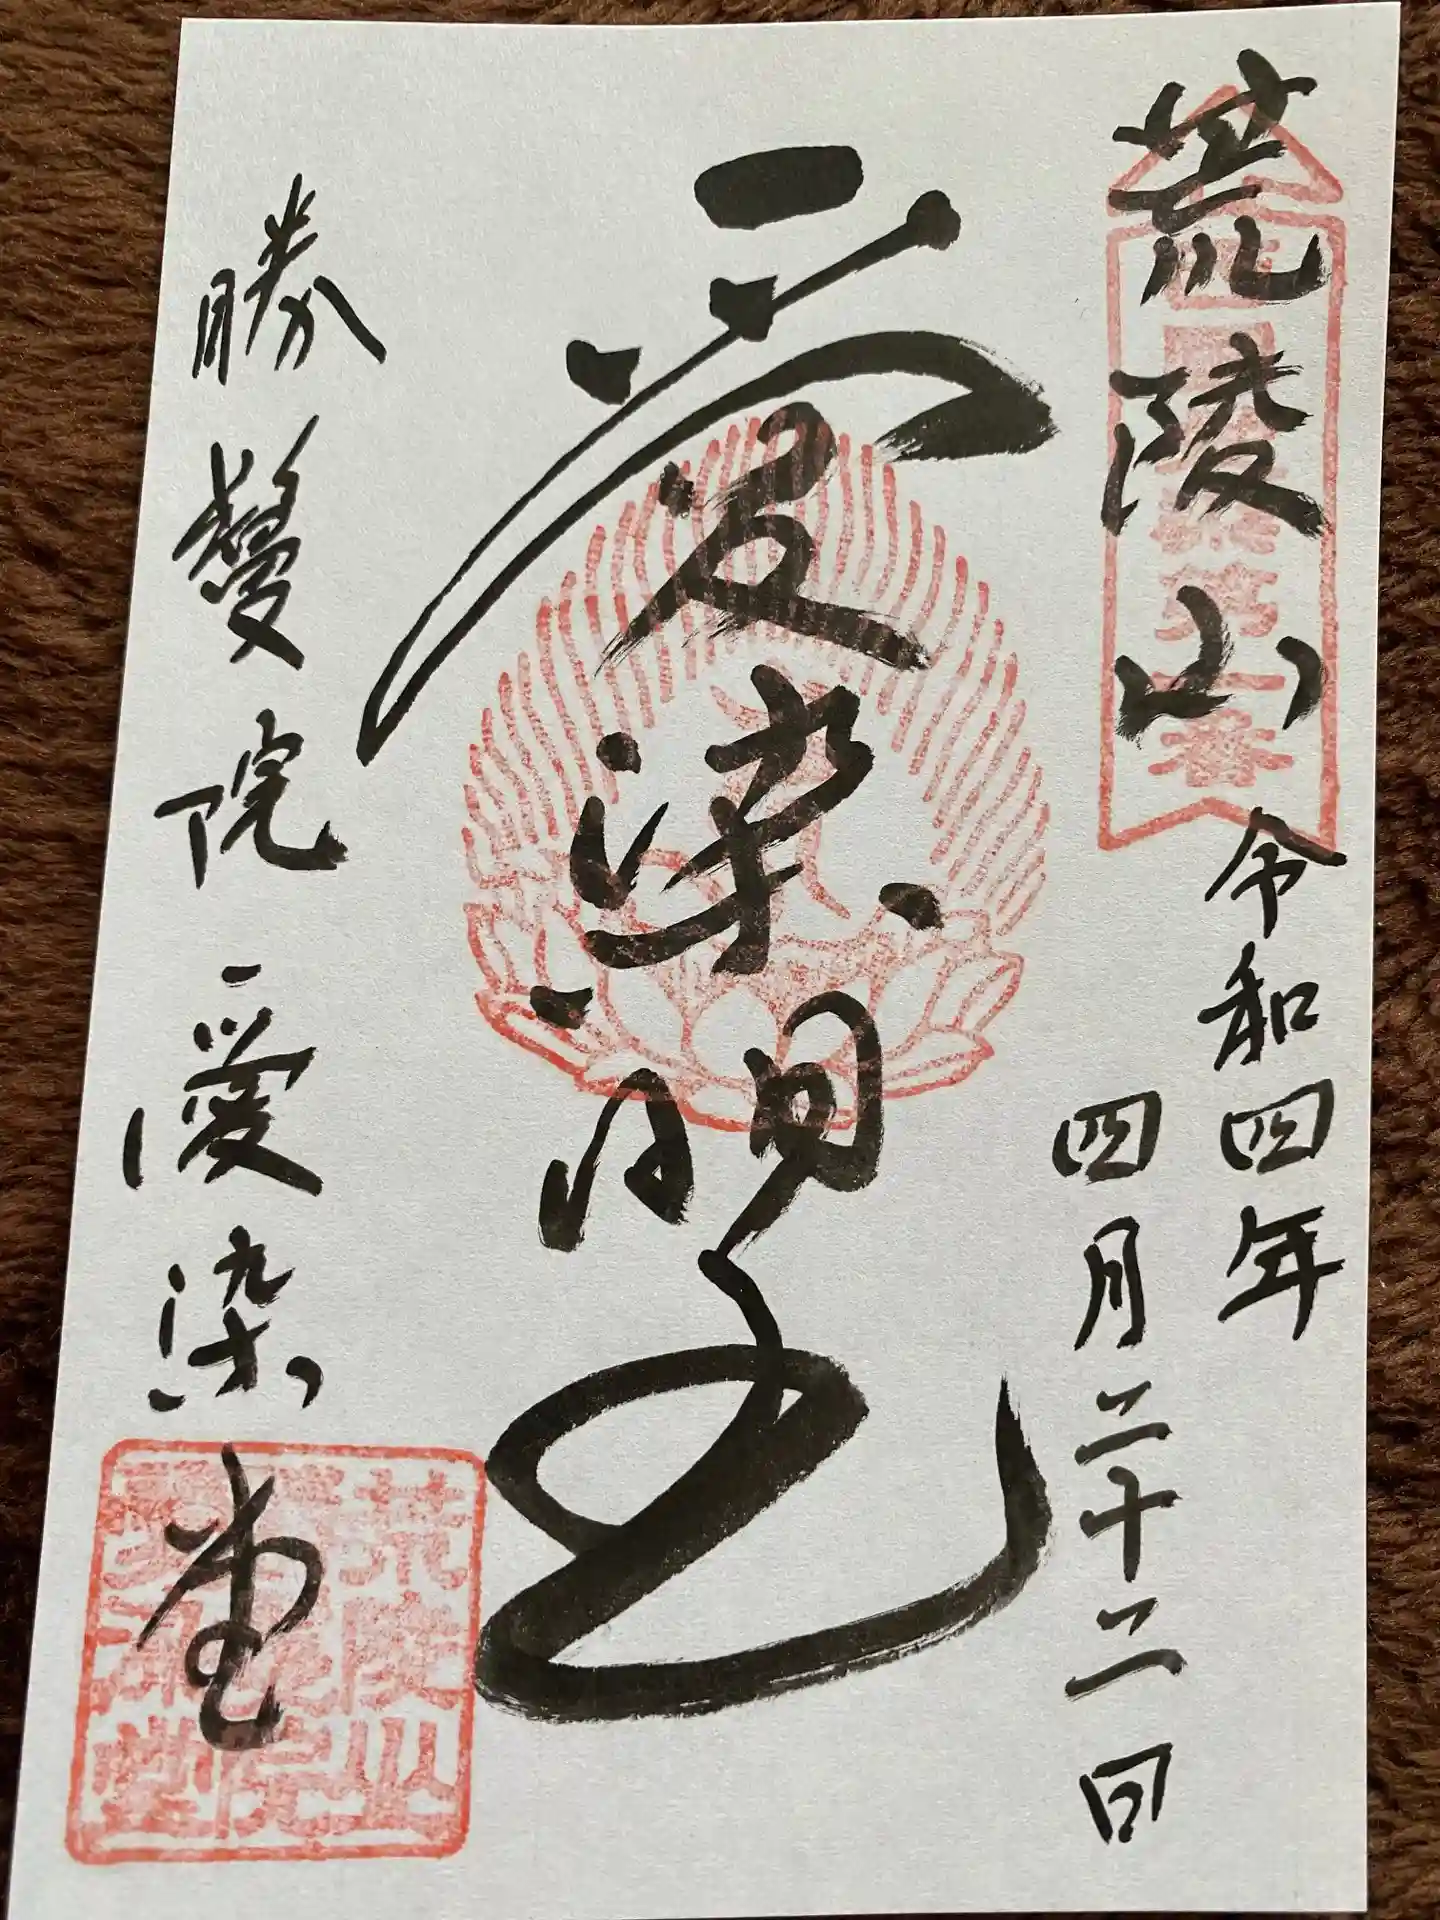 荒陵山
令和四年
四月二十二日
愛染明王
勝鬘院愛染堂
荒陵山